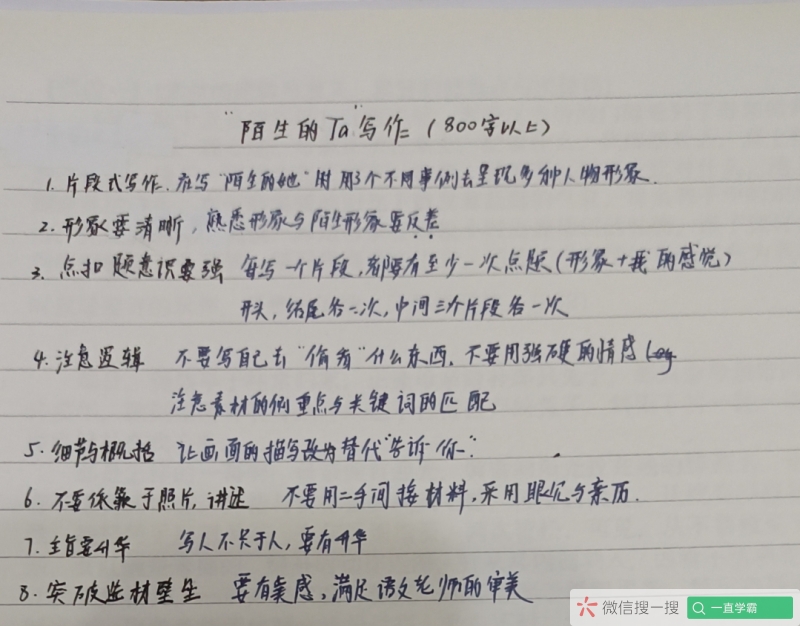 "陌生的Ta"写作 (800字以上)
1. 片段式写作. 在写"陌生的她"时用3个不同事例去呈现多种人物形象.
2. 形象要清晰, 熟悉形象与陌生形象要反差
3. 点扣题意识要强 每写一个片段, 都要有至少一次点题(形象+我的感觉)
开头, 结尾各一次, 中间三个片段各一次
4. 注意逻辑 不要写自己去"偷看"什么东西. 不要用强硬的情感
注意素材的侧重点与关键词的匹配
5. 细节与概括 让画面的描写改为替代"告诉你".
6. 不要依靠于照片, 讲述 不要用二手间接材料, 采用眼见与亲历.
7. 主旨要升华 写人不关于人, 要有升华
8. 突破选材壁垒 要有美感, 满足语文老师的审美
微信搜一搜
一直学霸